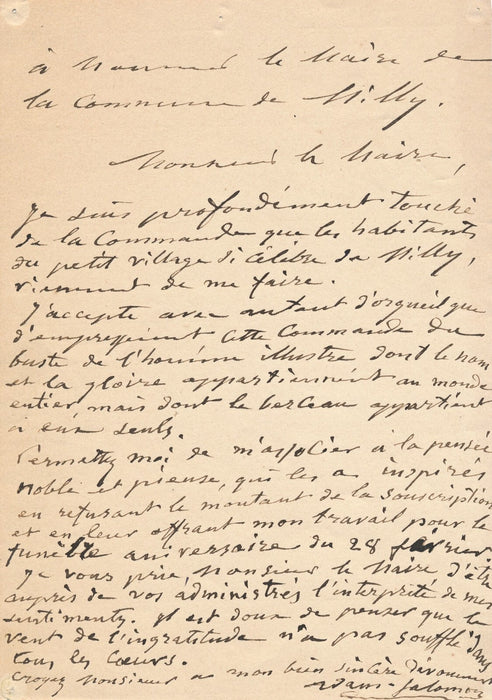 à Monsieur le Maire de
la Commune de Milly.
Monsieur le Maire,
Je suis profondément touché
de la Commande que les habitants
du petit village si Célèbre de Milly,
viennent de me faire.
J'accepte avec autant d'orgueil que
d'empressement Cette Commande du
buste de l'homme illustre dont le nom
et la gloire appartiennent au monde
entier, mais dont le berceau appartient
à eux seuls.
Permettez moi de m'associer à la pensée
noble et pieuse, qui les a inspirés
en refusant le montant de la souscription
et en leur offrant mon travail pour le
funèbre aniversaire du 28 février
Je vous prie, Monsieur le Maire d'être
auprès de vos administrés l'interprète de mes
sentiments. Il est doux de penser que le
vent de l'ingratitude n'a pas soufflé dans
tous les Cœurs.
Croyez Monsieur à mon bien sincère dévouement
Adam-Salomon